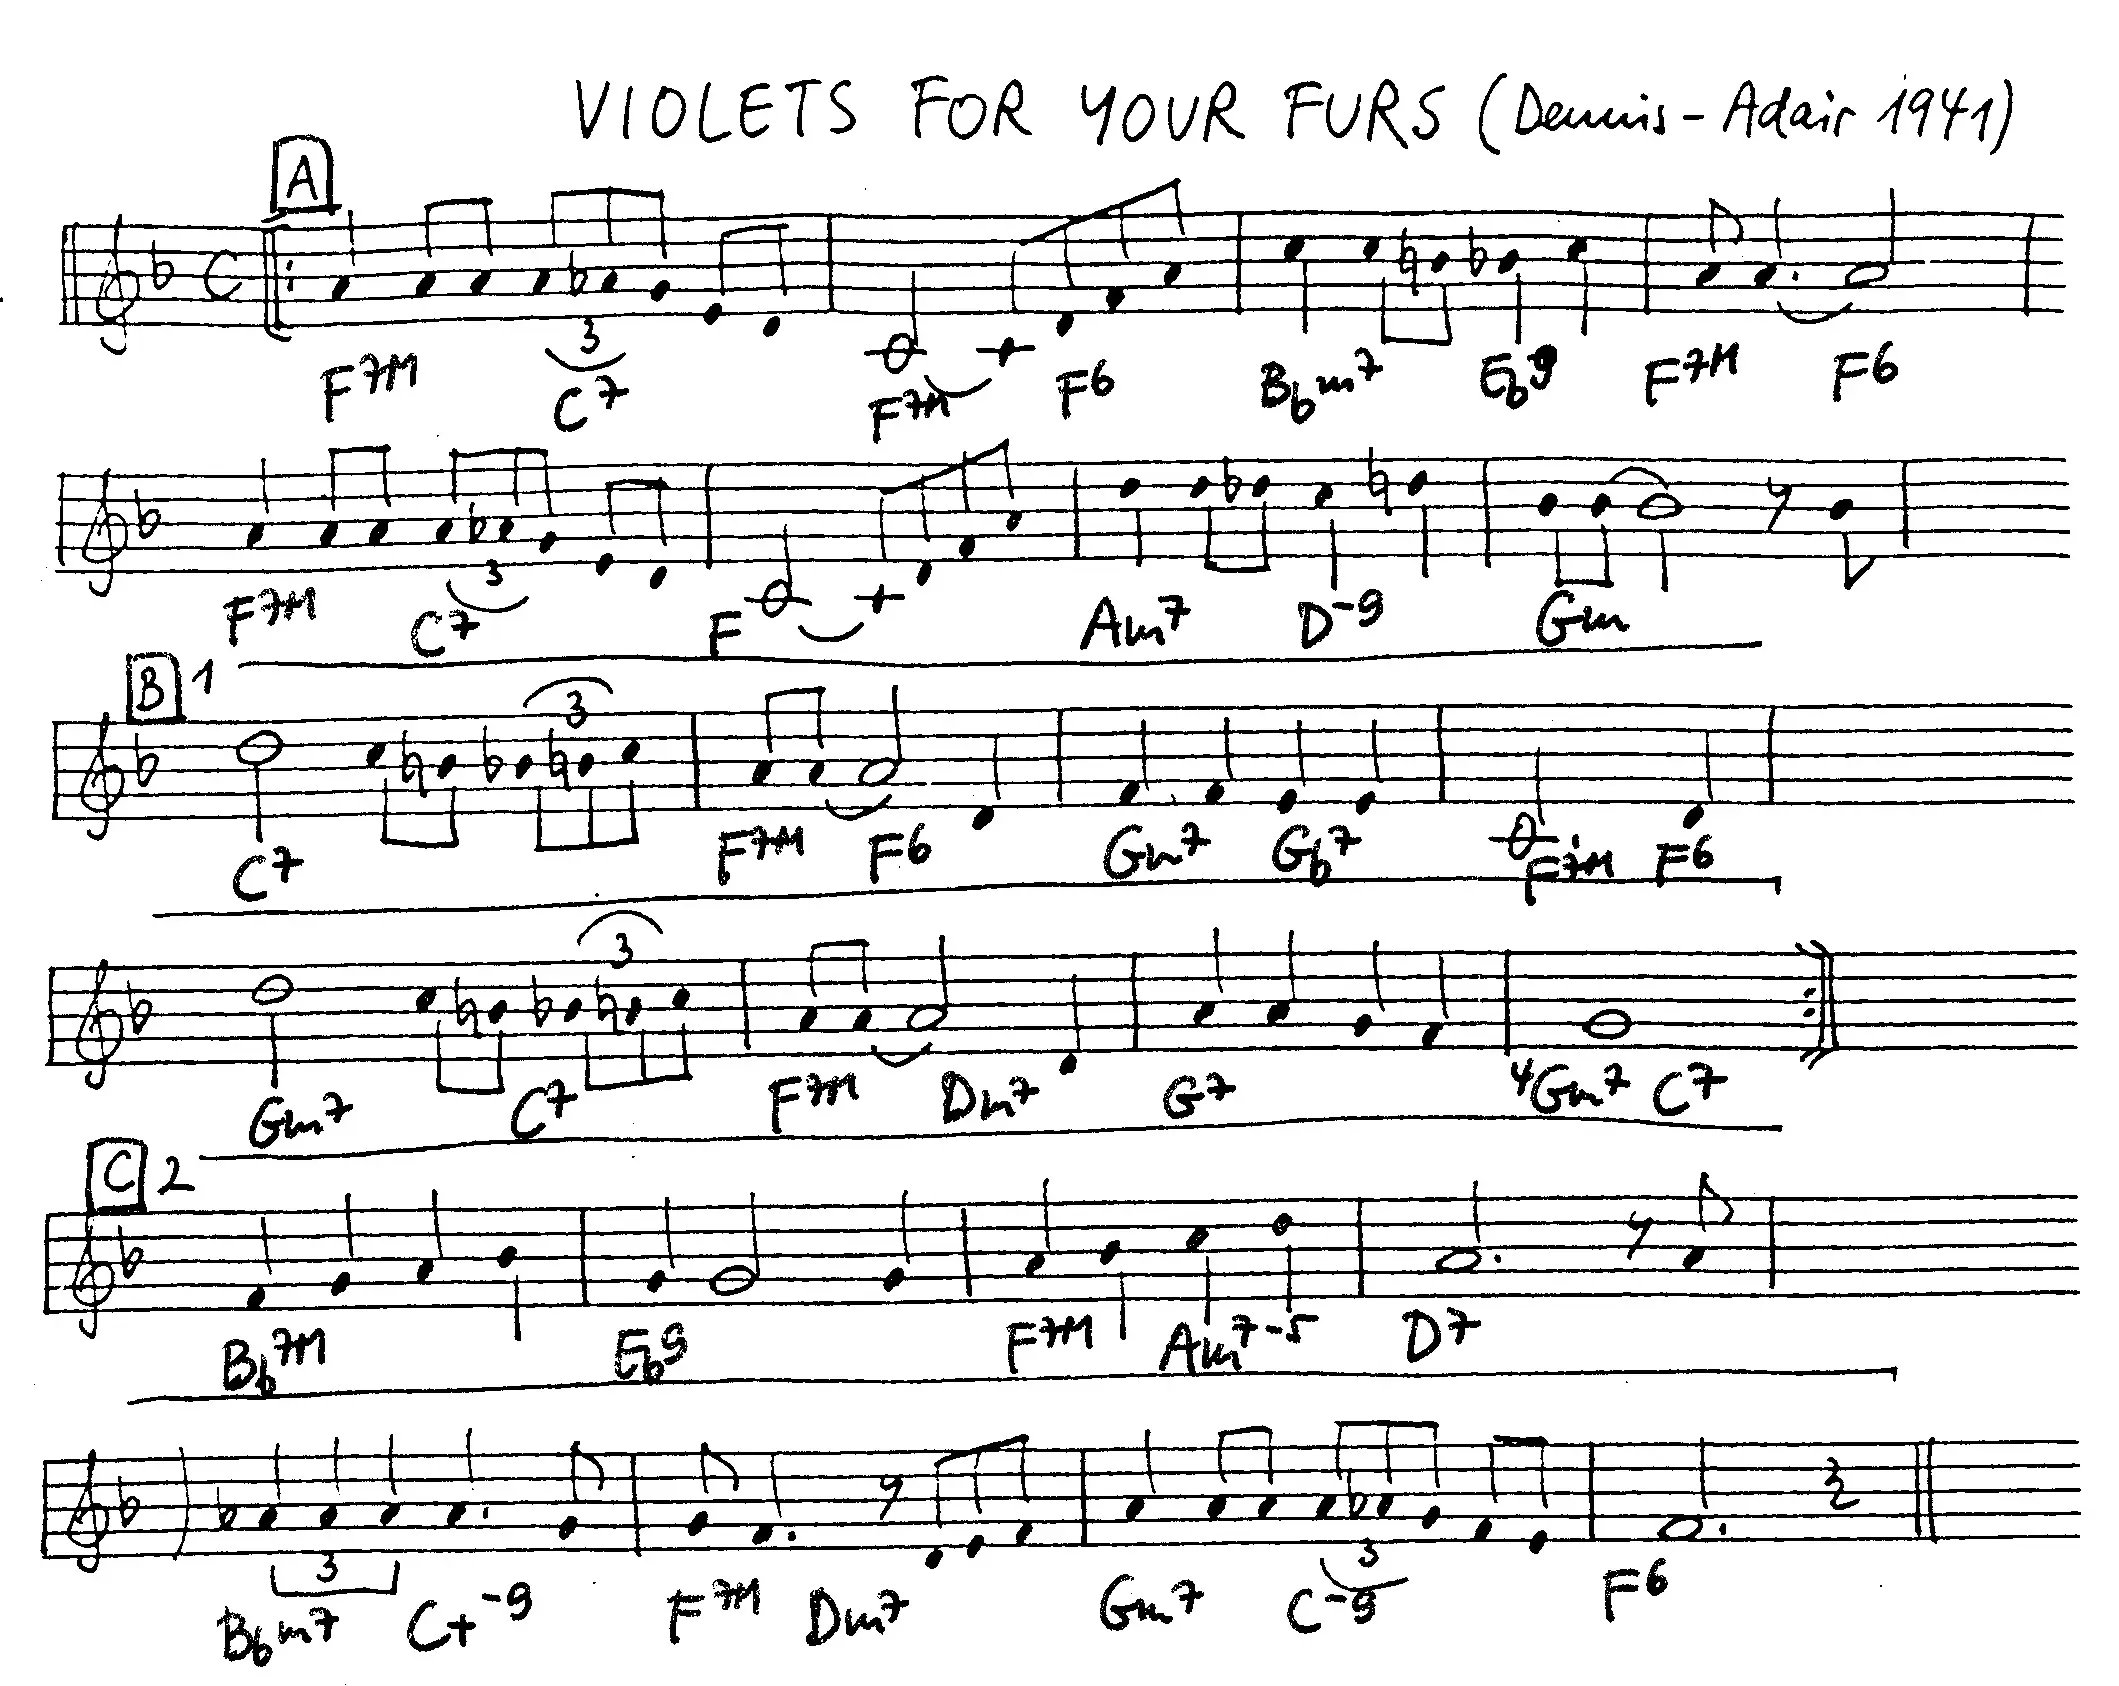 VIOLETS FOR YOUR FURS (Dennis-Adair 1941)
A
3
F7M C7 F7M F6 Bbm7 Eb9 F7M F6
3
F7M C7 F Am7 D-9 Gm
B 1
3
C7 F7M F6 Gm7 Gb7 F7M F6
3
Gm7 C7 F7M Dm7 G7 4Gm7 C7
C 2
Bb7M Eb9 F7M Am7-5 D7
3 3
Bbm7 C+-9 F7M Dm7 Gm7 C-9 F6